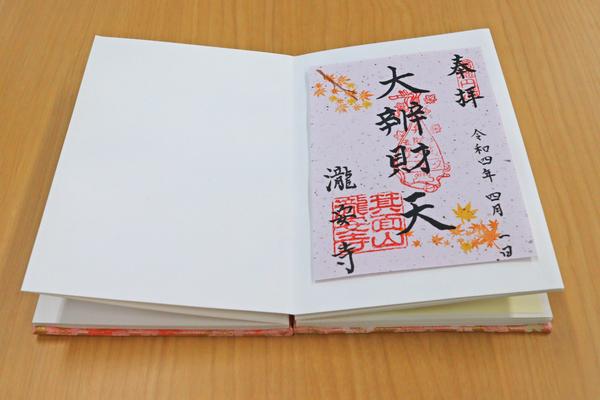 奉拝
令和四年 四月 一日
大辨財天
瀧安寺
箕面山
瀧安寺